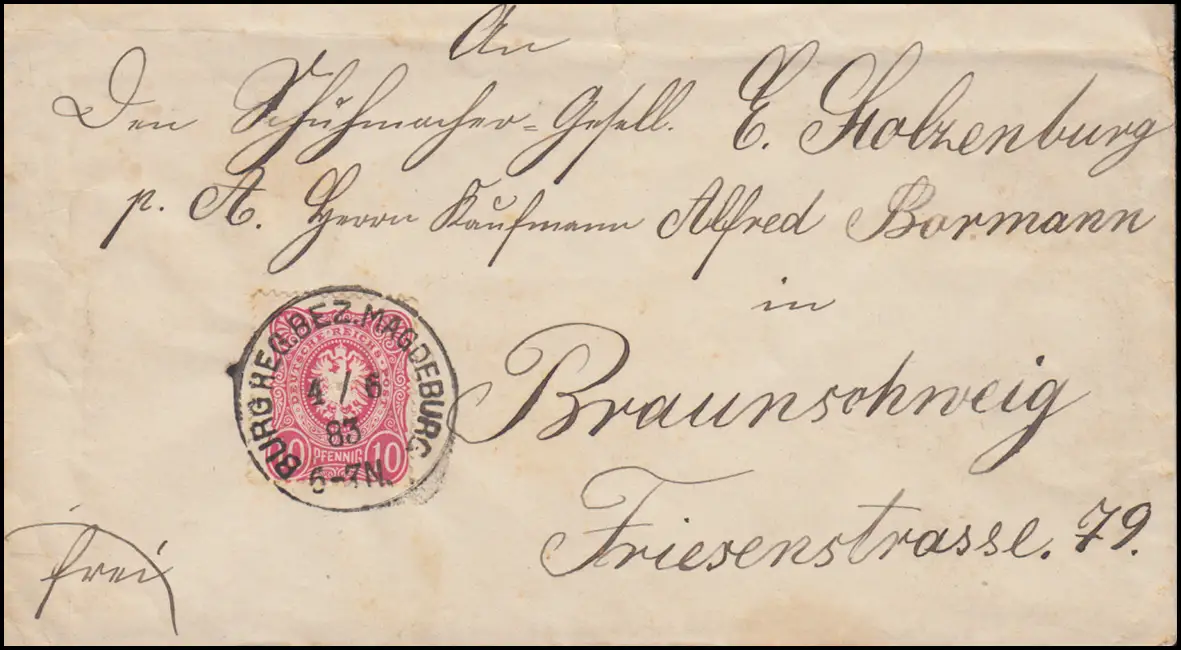 An
Den Schuhmacher-Gesell. E. Stolzenburg
p. A. Herrn Kaufmann Alfred Bormann
in
Braunschweig
Friesenstrasse. 79.
frei
BURG REG.BEZ.MAGDEBURG
4 / 6
83
6-7N.
DEUTSCHE REICHS-POST
10 PFENNIG 10